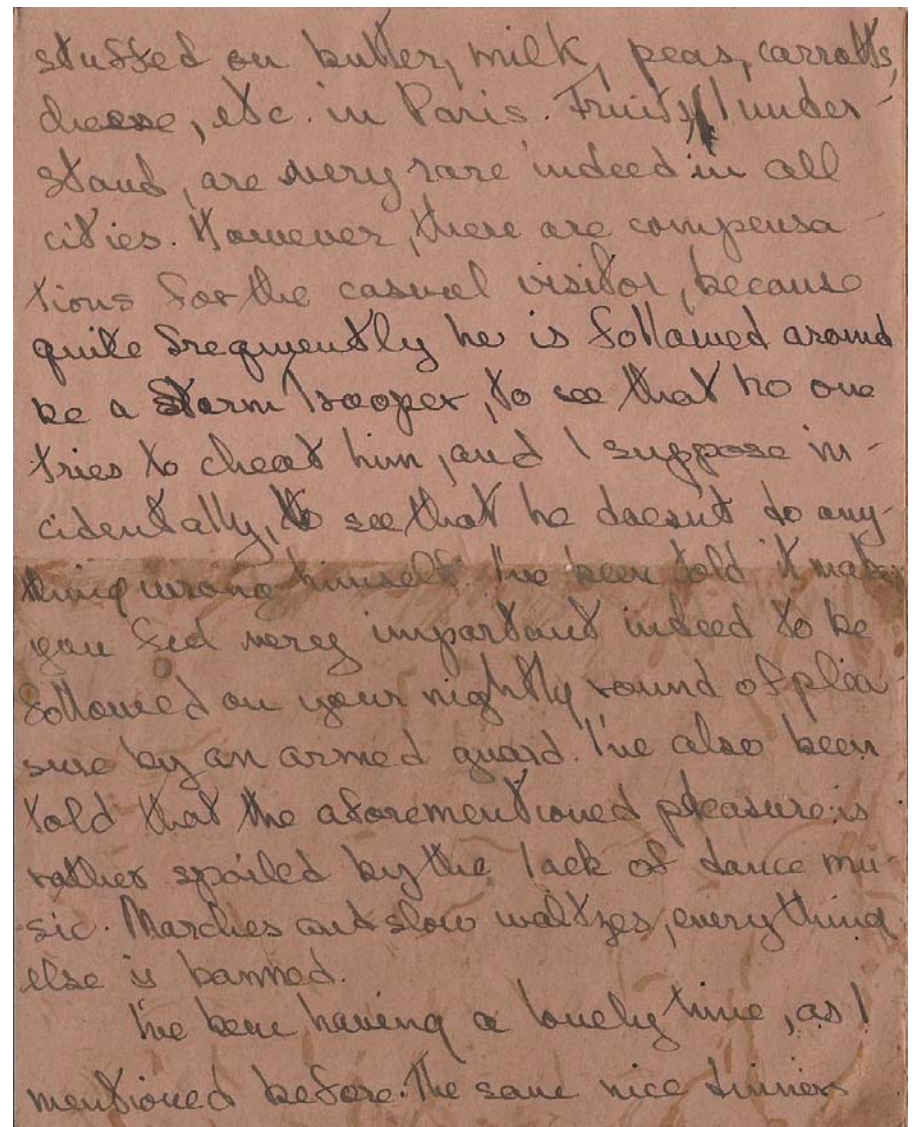 stuffed on butter, milk, peas, carrotts,
cheese, etc. in Paris. Fruits, I under-
stand, are very rare indeed in all
cities. However, there are compensa-
tions for the casual visitor, because
quite frequently he is followed around
be a storm trooper, to see that no one
tries to cheat him, and I suppose in-
cidentally, to see that he doesn't do any-
thing wrong himself. I've been told it makes
you feel very important indeed to be
followed on your nightly round of plea-
sure by an armed guard. I've also been
told that the aforementioned pleasure is
rather spoiled by the lack of dance mu-
sic. Marches and slow waltzes, everything
else is banned.
I've been having a lovely time, as I
mentioned before. The same nice dinners